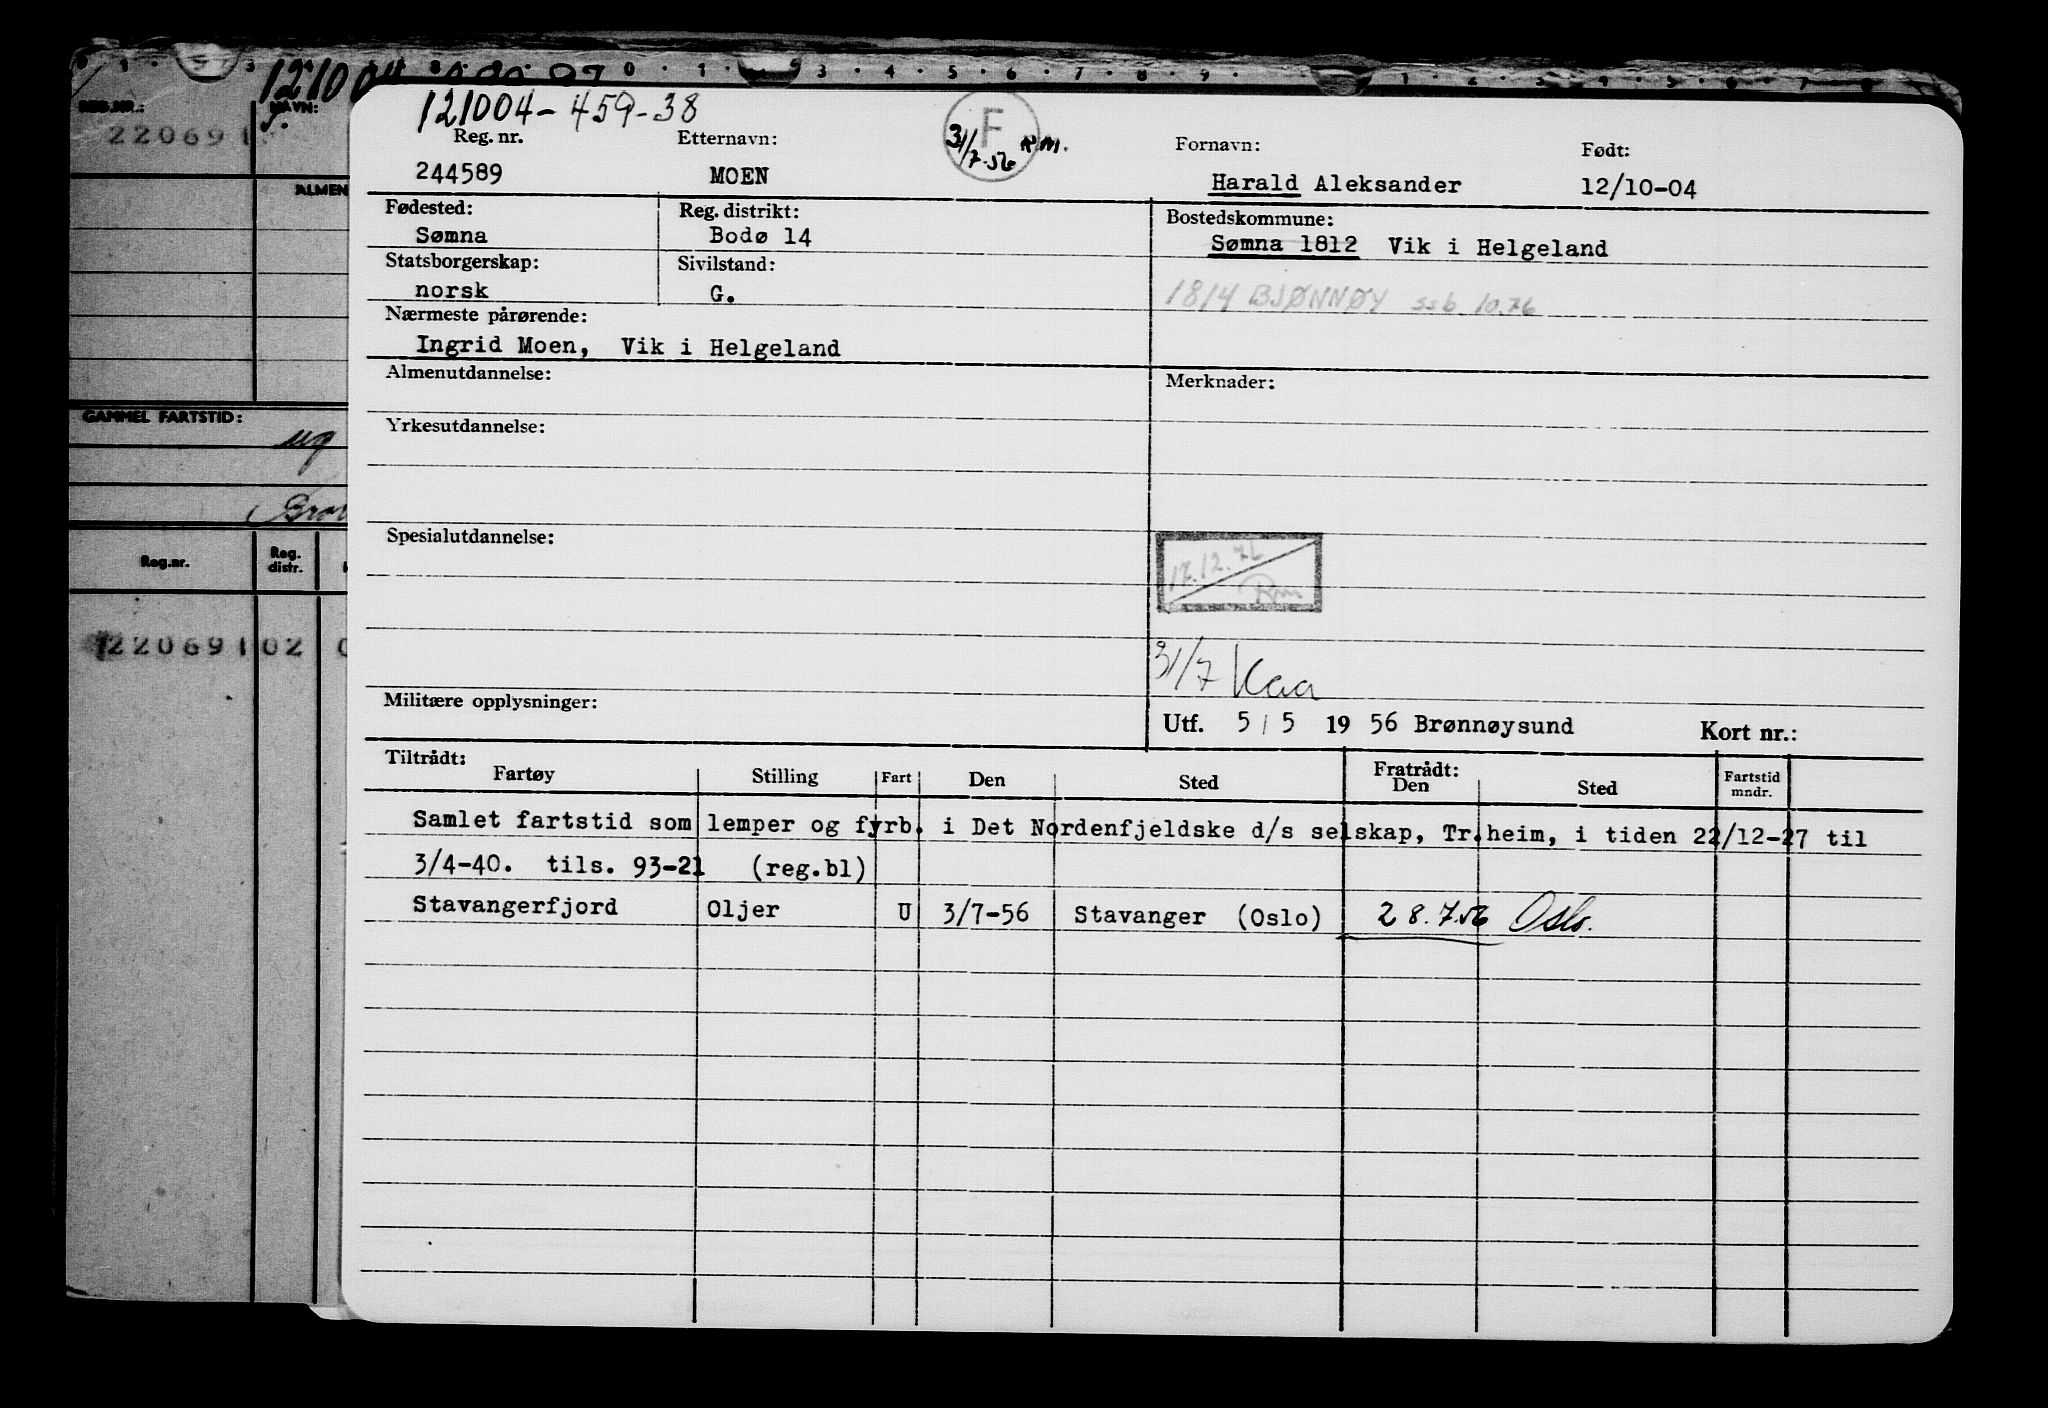 121004
REG.NR.:
NAVN:
220691
ALMEN
GAMMEL FARTSTID:
ug
Reg.nr.
Reg. distr.
220691 02
121004-459-38
Reg. nr.
Etternavn:
F
31/7-56
R.M.
Fornavn:
Født:
244589
MOEN
Harald Aleksander
12/10-04
Fødested:
Reg. distrikt:
Bostedskommune:
Sømna
Bodø 14
Sømna 1812 Vik i Helgeland
Statsborgerskap:
Sivilstand:
norsk
G.
1814 BJØNNØY ssb. 10.76
Nærmeste pårørende:
Ingrid Moen, Vik i Helgeland
Almenutdannelse:
Merknader:
Yrkesutdannelse:
Spesialutdannelse:
17.12.71
31/7 Kaa
Militære opplysninger:
Utf. 5/5 19 56 Brønnøysund
Kort nr.:
Tiltrådt:
Fratrådt:
Fartøy
Stilling
Fart
Den
Sted
Den
Sted
Fartstid mndr.
Samlet fartstid som lemper og fyrb. i Det Nordenfjeldske d/s selskap, Tr.heim, i tiden 22/12-27 til
3/4-40. tils. 93-21 (reg.bl)
Stavangerfjord Oljer U 3/7-56 Stavanger (Oslo) 28.7.56 Oslo.